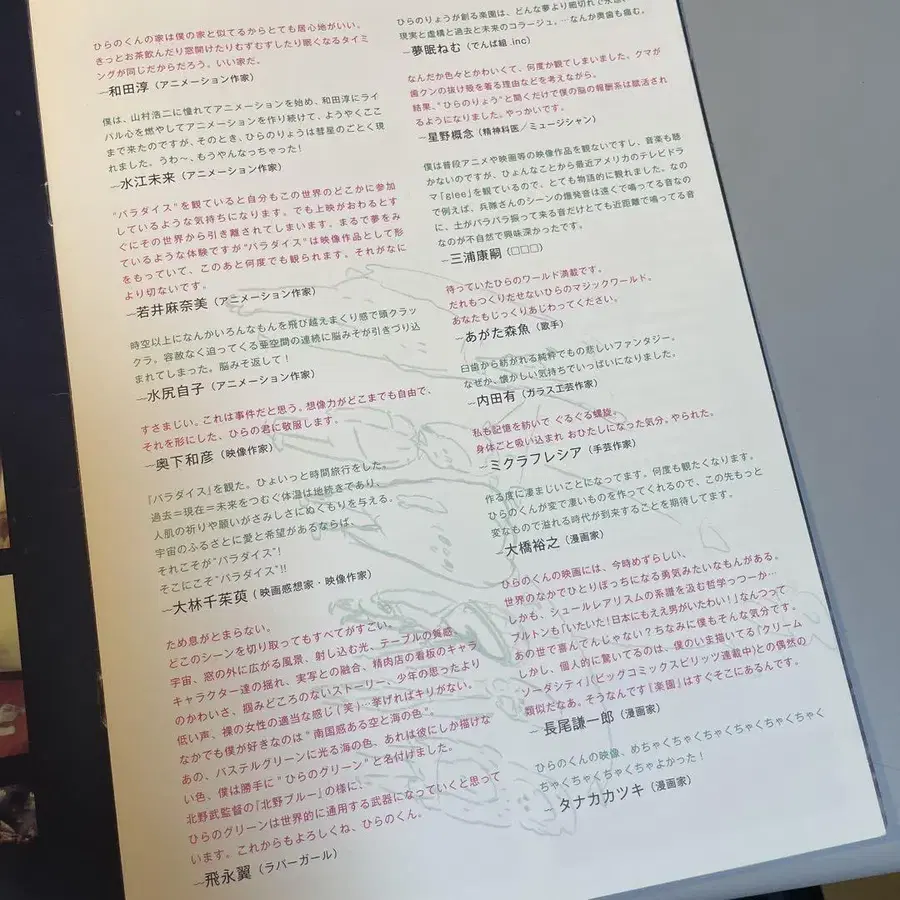 ひらのくんの家は僕の家と似てるからとても居心地がいい。
きっとお茶飲んだり窓開けたりむずむずしたり眠くなるタイミ
ングが同じだからだろう。いい家だ。
—和田淳（アニメーション作家）
僕は、山村浩二に憧れてアニメーションを始め、和田淳にライ
バル心を燃やしてアニメーションを作り続けて、ようやくここ
まで来たのですが、そのとき、ひらのりょうは彗星のごとく現
れました。うわ〜、もうやんなっちゃった！
—水江未来（アニメーション作家）
"パラダイス"を観ていると自分もこの世界のどこかに参加
しているような気持ちになります。でも上映がおわるとす
ぐにその世界から引き離されてしまいます。まるで夢をみ
ているような体験ですが"パラダイス"は映像作品として形
をもっていて、このあと何度でも観られます。それがなに
より切ないです。
—若井麻奈美（アニメーション作家）
時空以上になんかいろんなもんを飛び越えまくり感で頭クラッ
クラ。容赦なく迫ってくる亜空間の連続に脳みそが引きづり込
まれてしまった。脳みそ返して！
—水尻自子（アニメーション作家）
すさまじい。これは事件だと思う。想像力がどこまでも自由で、
それを形にした、ひらの君に敬服します。
—奥下和彦（映像作家）
『パラダイス』を観た。ひょいっと時間旅行をした。
過去＝現在＝未来をつむぐ体温は地続きであり、
人肌の祈りや願いがさみしさにぬくもりを与える。
宇宙のふるさとに愛と希望があるならば、
それこそが"パラダイス"！
そこにこそ"パラダイス"!!
—大林千茱萸（映画感想家・映像作家）
ため息がとまらない。
どこのシーンを切り取ってもすべてがすごい。
宇宙、窓の外に広がる風景、射し込む光、テーブルの質感、
キャラクター達の揺れ、実写との融合、精肉店の看板のキャラ
のかわいさ、掴みどころのないストーリー、少年の思ったより
低い声、裸の女性の適当な感じ（笑）…挙げればキリがない。
なかでも僕が好きなのは"南国感ある空と海の色"。
あの、パステルグリーンに光る海の色、あれは彼にしか描けな
い色、僕は勝手に"ひらのグリーン"と名付けました。
北野武監督の「北野ブルー」の様に、
ひらのグリーンは世界的に通用する武器になっていくと思って
います。これからもよろしくね、ひらのくん。
—飛永翼（ラバーガール）
ひらのりょうが創る楽園は、どんな夢より細切れで永遠、
現実と虚構と過去と未来のコラージュ。…なんか奥歯も痛む。
—夢眠ねむ（でんぱ組.inc）
なんだか色々とかわいくて、何度か観てしまいました。クマが
歯クンの抜け殻を着る理由などを考えながら。
結果、"ひらのりょう"と聞くだけで僕の脳の報酬系は賦活され
るようになりました。やっかいです。
—星野概念（精神科医／ミュージシャン）
僕は普段アニメや映画等の映像作品を観ないですし、音楽も聴
かないのですが、ひょんなことから最近アメリカのテレビドラ
マ「glee」を観ているので、とても物語的に観れました。なの
で例えば、兵隊さんのシーンの爆発音は遠くで鳴ってる音なの
に、土がパラパラ振って来る音だけとても近距離で鳴ってる音
なのが不自然で興味深かったです。
—三浦康嗣（□□□）
待っていたひらのワールド満載です。
だれもつくりだせないひらのマジックワールド。
あなたもじっくりあじわってください。
—あがた森魚（歌手）
臼歯から紡がれる純粋でもの悲しいファンタジー。
なぜか、懐かしい気持ちでいっぱいになりました。
—内田有（ガラス工芸作家）
私も記憶を紡いで ぐるぐる螺旋。
身体ごと吸い込まれ おひたしになった気分。やられた。
—ミクラフレシア（手芸作家）
作る度に凄まじいことになってます。何度も観たくなります。
ひらのくんが変で凄いものを作ってくれるので、この先もっと
変なもので溢れる時代が到来することを期待してます。
—大橋裕之（漫画家）
ひらのくんの映画には、今時めずらしい、
世界のなかでひとりぼっちになる勇気みたいなもんがある。
しかも、シュールレアリスムの系譜を汲む哲学っつーか…
ブルトンも「いたいた！日本にもええ男がいたわい！」なんつって
あの世で喜んでんじゃない？ちなみに僕もそんな気分です。
しかし、個人的に驚いてるのは、僕のいま描いてる『クリーム
ソーダシティ』（ビックコミックスピリッツ連載中）との偶然の
類似だなあ。そうなんです『楽園』はすぐそこにあるんです。
—長尾謙一郎（漫画家）
ひらのくんの映像、めちゃくちゃくちゃくちゃくちゃくちゃく
ちゃくちゃくちゃくちゃよかった！
—タナカカツキ（漫画家）